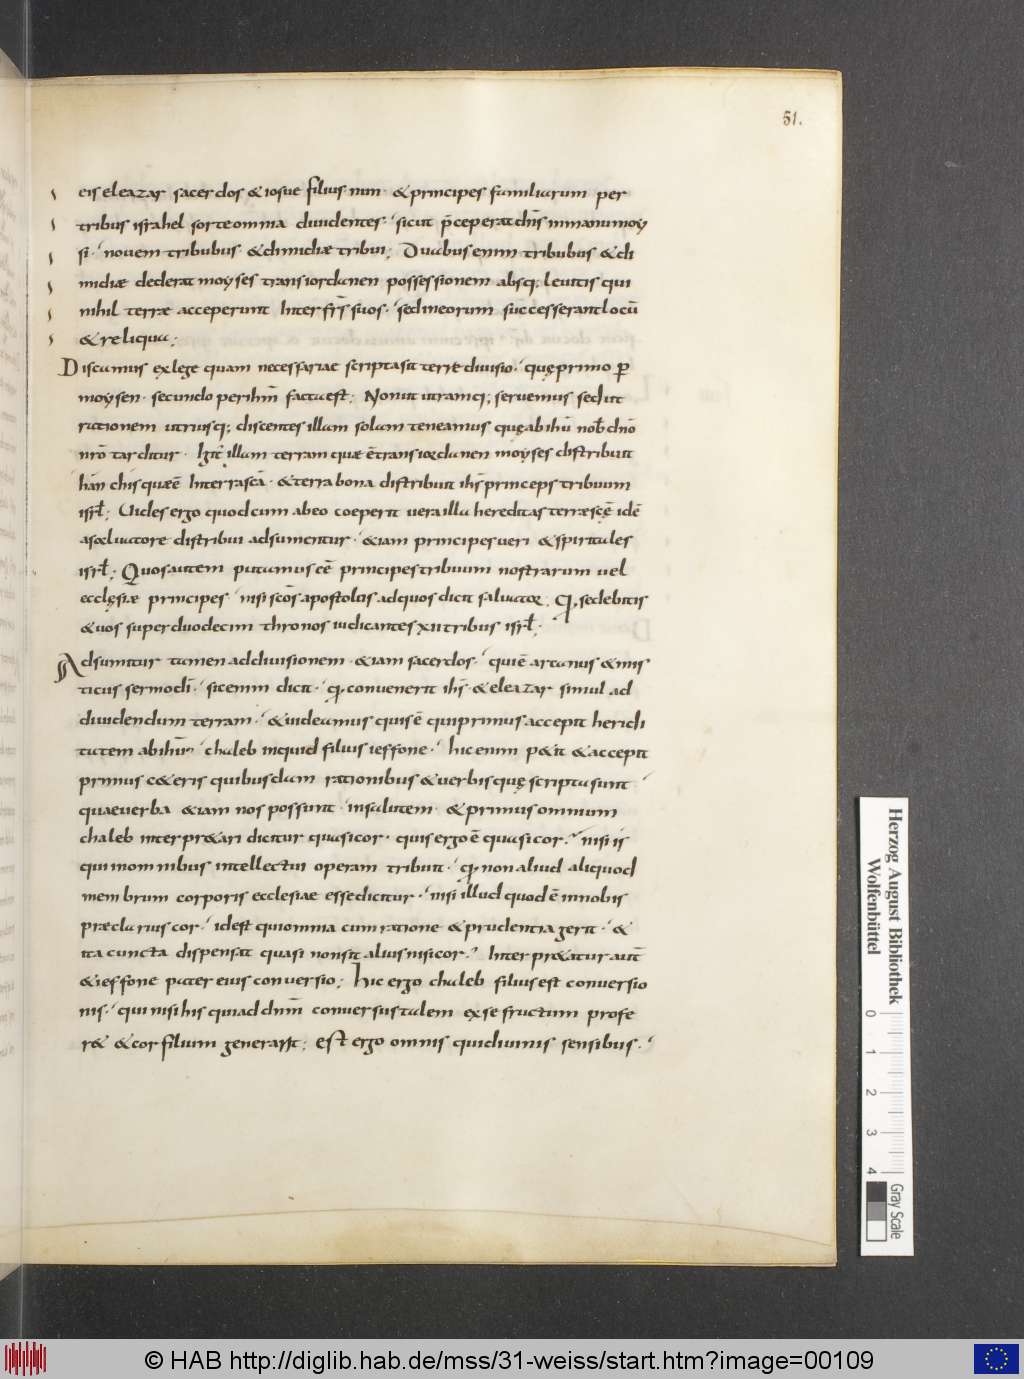 51.
eis eleazar sacerdos & iosue filius nun· & principes familiarum per
tribus israhel sorte omnia diuidentes· sicut p̄ceperat dn̄s in manu moy
si· nouem tribubus & dimidiæ tribui; Duabus enim tribubus & di
midiæ dederat moyses trans iordanen possessionem absq; leuitis qui
nihil terræ acceperunt Inter frs̄ suos· sed in eorum successerant locū
& reliqua;
Discamus ex lege quam necessariae scripta sit terrę diuisio· quę primo ꝑ
moysen· secundo per ihm̄ facta est; Non ut utramq; seruemus sed ut
rationem utriusq; discentes illam solam teneamus quę ab ihū nob̄ dn̄o
nr̄o tarditur· Igit̄ illam terram quae ē trans iordanen moyses distribuit
hān quae ē Inter rascā· & terra bona distribuit ihs̄ princeps tribuum
isrl̄; Uides ergo quod cum ab eo coeperit uera illa hereditas terræ scę̄ idē
a saluatore distribui adsumentur· &iam principes ueri & spiritales
isrl̄; Quos autem putamus eē principes tribuum nostrarum uel
ecclęsiæ principes nisi scōs apostolos ad quos dicit saluator; Q, sedebitis
& uos super duodecim thronos iudicantes xii tribus isrl̄·
Adsumitur tamen ad diuisionem· &iam sacerdos· qui ē arcanus & mis
ticus sermo dī· sic enim dicit· q, conuenerit ihs̄· & eleazar simul ad
diuidendum terram· & uideamus quis ē qui primus accepit heridi
tatem ab ihū· chaleb inquid filius ieffone· hic enim p&it & accepit
primus c&eris quibusdam rationibus & uerbis quę scripta sunt
quae uerba &iam nos possunt· in salutem· & primus omnium
chaleb interpr&ari dicitur quasi cor· quis ergo ē quasi cor· nisi is
qui in omnibus intellectui operam tribuit· q, non aliud aliquod
membrum corporis ecclesiae esse dicitur· nisi illud quod ē in nobis
præclarius cor· id est qui omnia cum ratione & prudentia gerit· &
ita cuncta dispensat quasi non sit alius nisi cor· Interpr&atur aut̄
& ieffone pater eius conuersio; hic ergo chaleb filius est conuersio
nis· qui nisi his quia ad dnm̄ conuersus talem ex se fructum profe
r& & cor filium generarit; Est ergo omnis qui diuinis sensibus·
Herzog August Bibliothek
Wolfenbüttel
0 1 2 3 4
Gray Scale
© HAB http://diglib.hab.de/mss/31-weiss/start.htm?image=00109